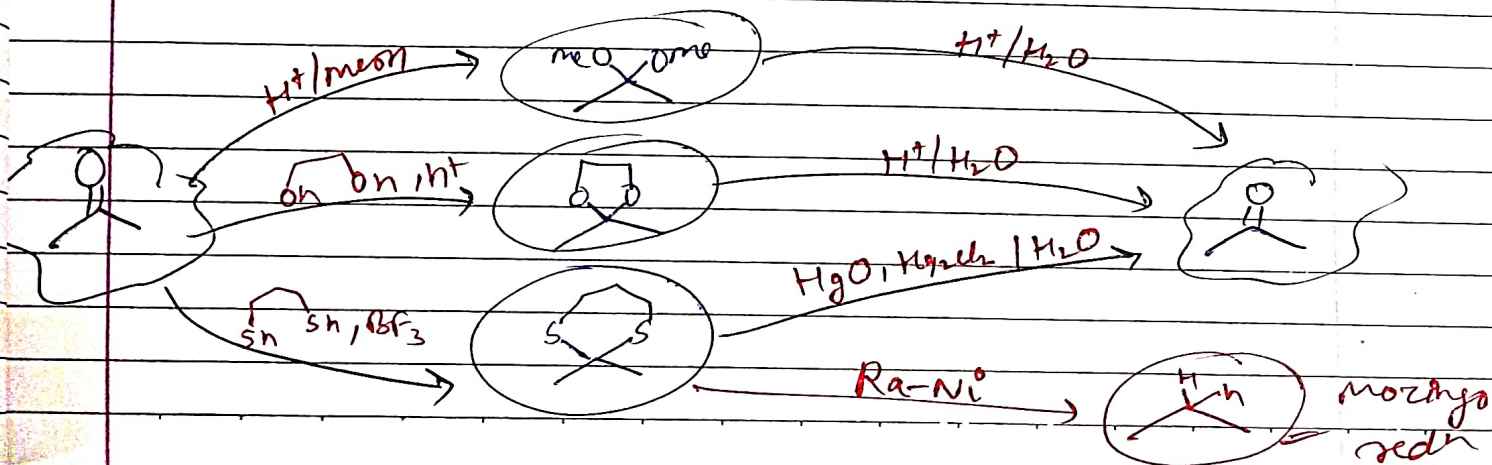 H⁺/meoh
meO OMe
H⁺/H₂O
O
oh oh , h⁺
O O
H⁺/H₂O
O
sh sh, BF₃
S S
HgO, Hg₂Cl₂ / H₂O
Ra-Ni
H h
mozingo
redn